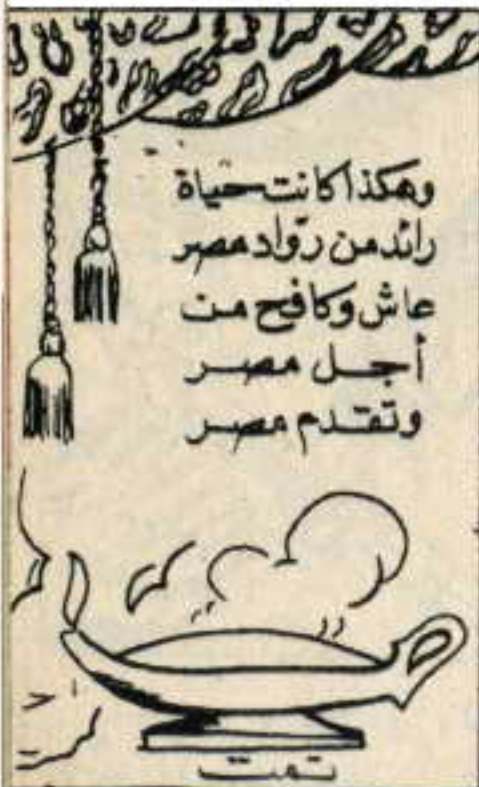 وهكذا كانت حياة
رائد من روّاد مصر
عاش وكافح من
أجل مصر
وتقدم مصر
تمت